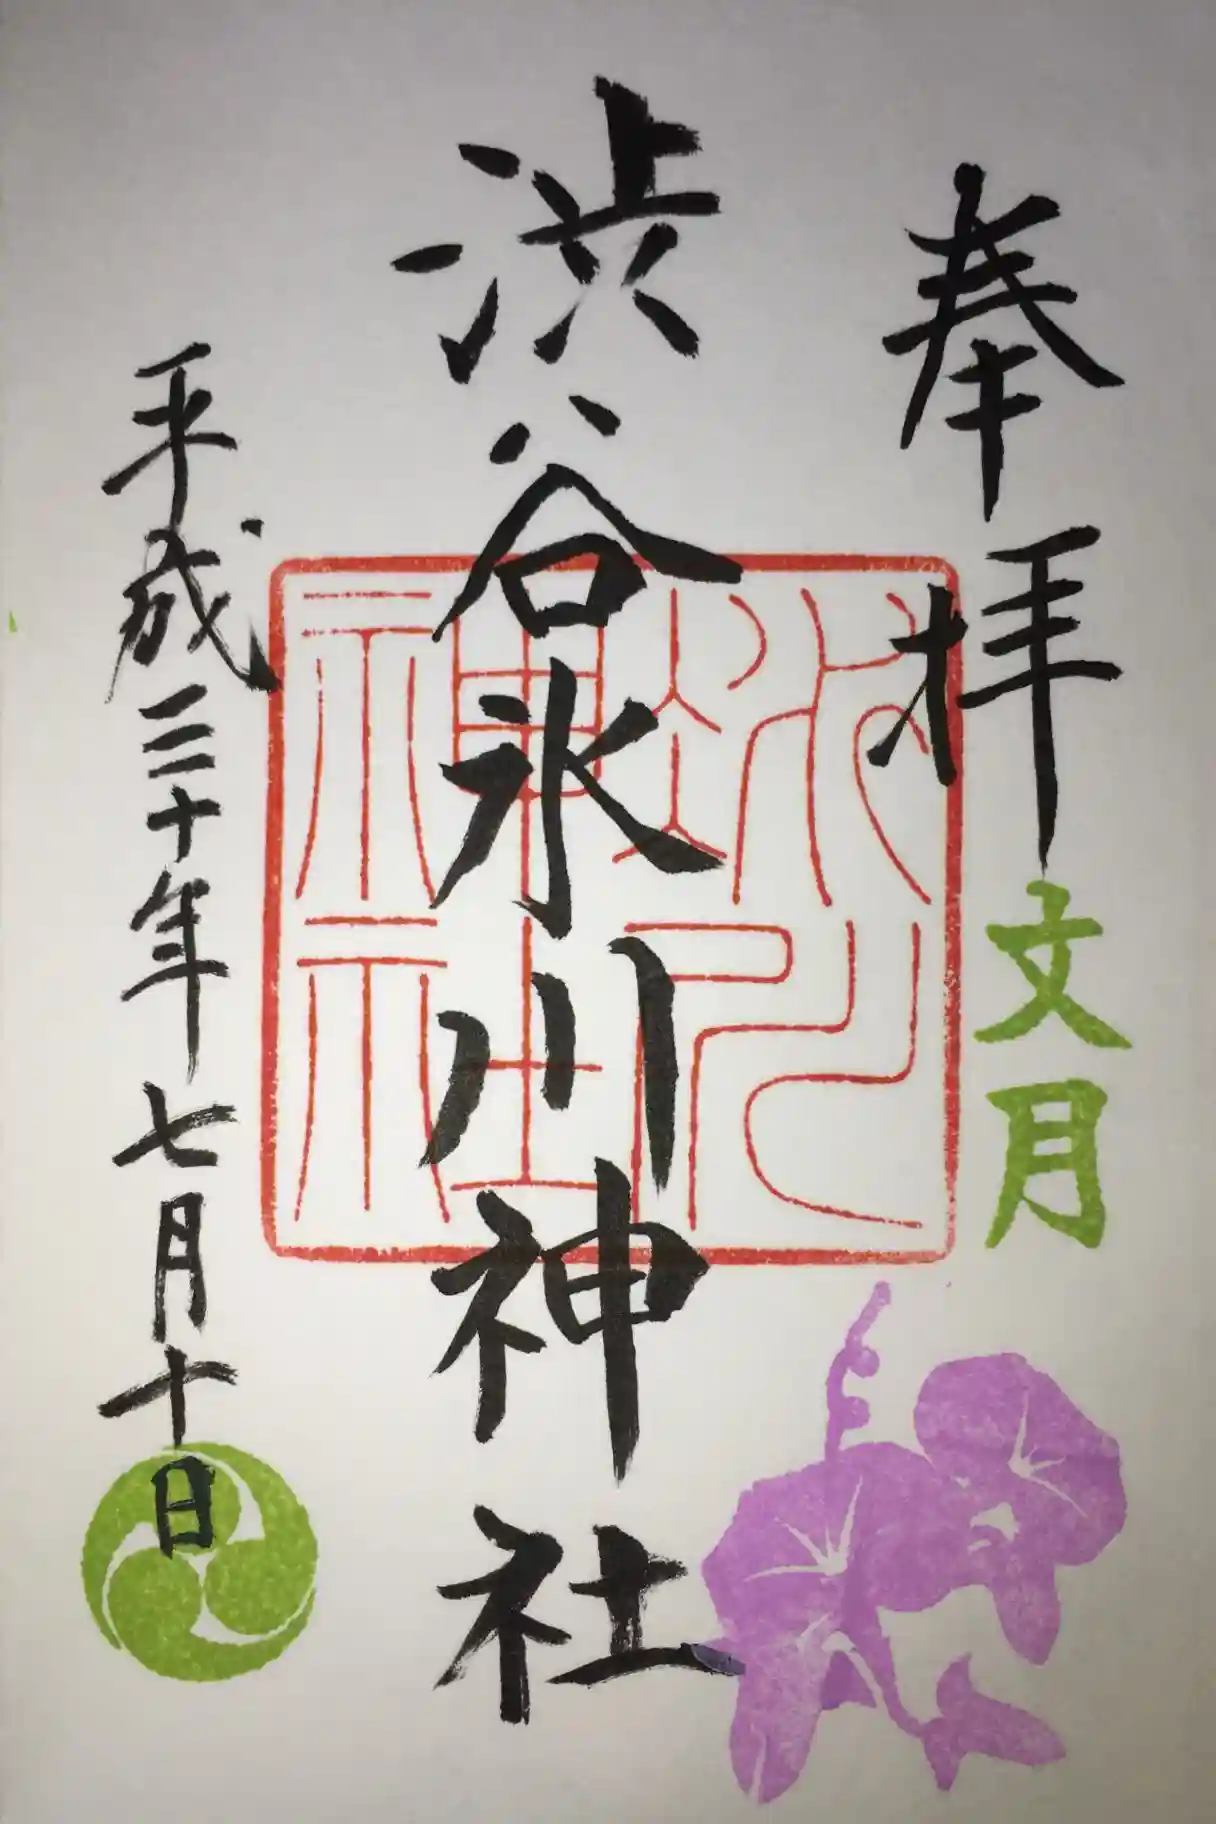 奉拝
文月
渋谷氷川神社
氷川
神社
平成三十年七月十日